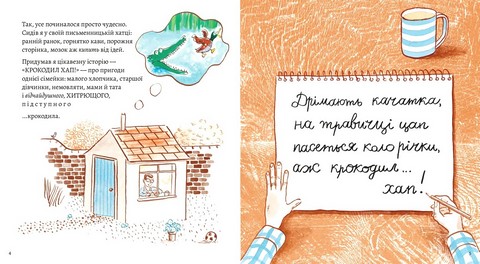 Так, усе починалося просто чудесно.
Сидів я у своїй письменницькій хатці:
ранній ранок, горнятко кави, порожня
сторінка, мозок аж кипить від ідей.
Придумав я цікавезну історію —
«КРОКОДИЛ ХАП!» — про пригоди
однієї сімейки: малого хлопчика, старшої
дівчинки, немовляти, мами й тата
і відчайдушного, ХИТРЮЩОГО,
підступного
...крокодила.
4
Дрімають качатка,
на травичці цап
пасеться коло річки,
аж крокодил...
хап!